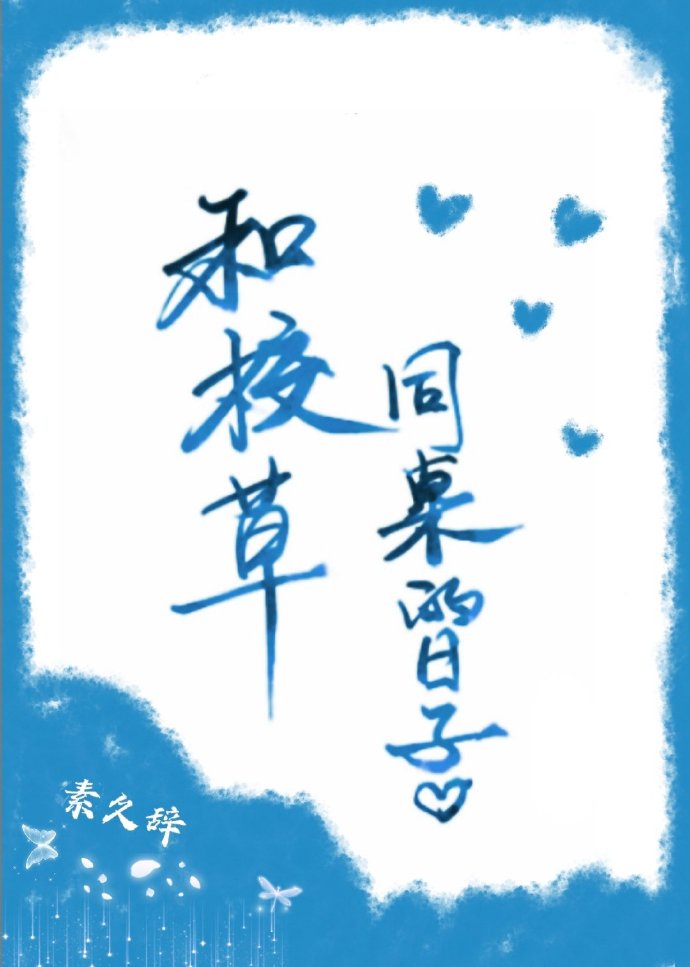 和校草
同桌的日子
素久辞